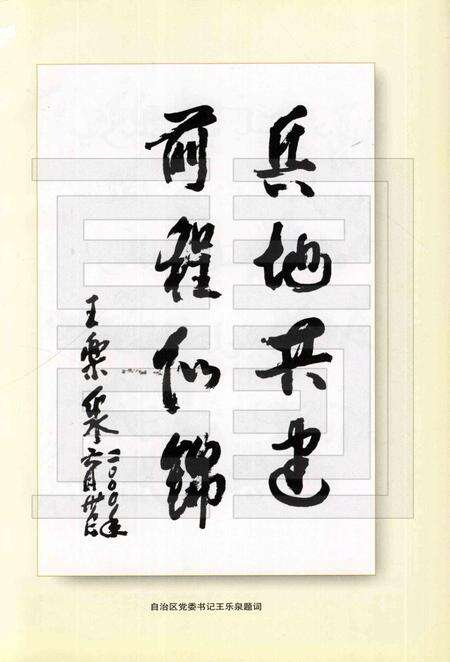 兵地共建
前程似锦
王乐泉
二〇〇〇年
六月廿六日
自治区党委书记王乐泉题词